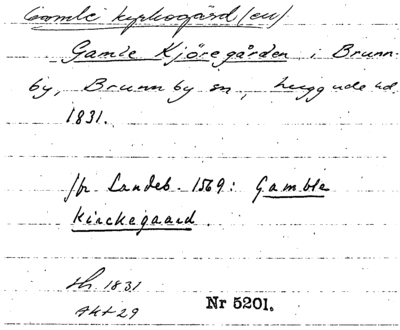 Gamle kyrkogård (en)
Gamle Kjöregården i Brunn-
by, Brunnby sn, huggude ud.
1831.
fr Landeb. 1569: Gamble
Kirckegaard.
sh. 1831
akt 29
Nr 5201.